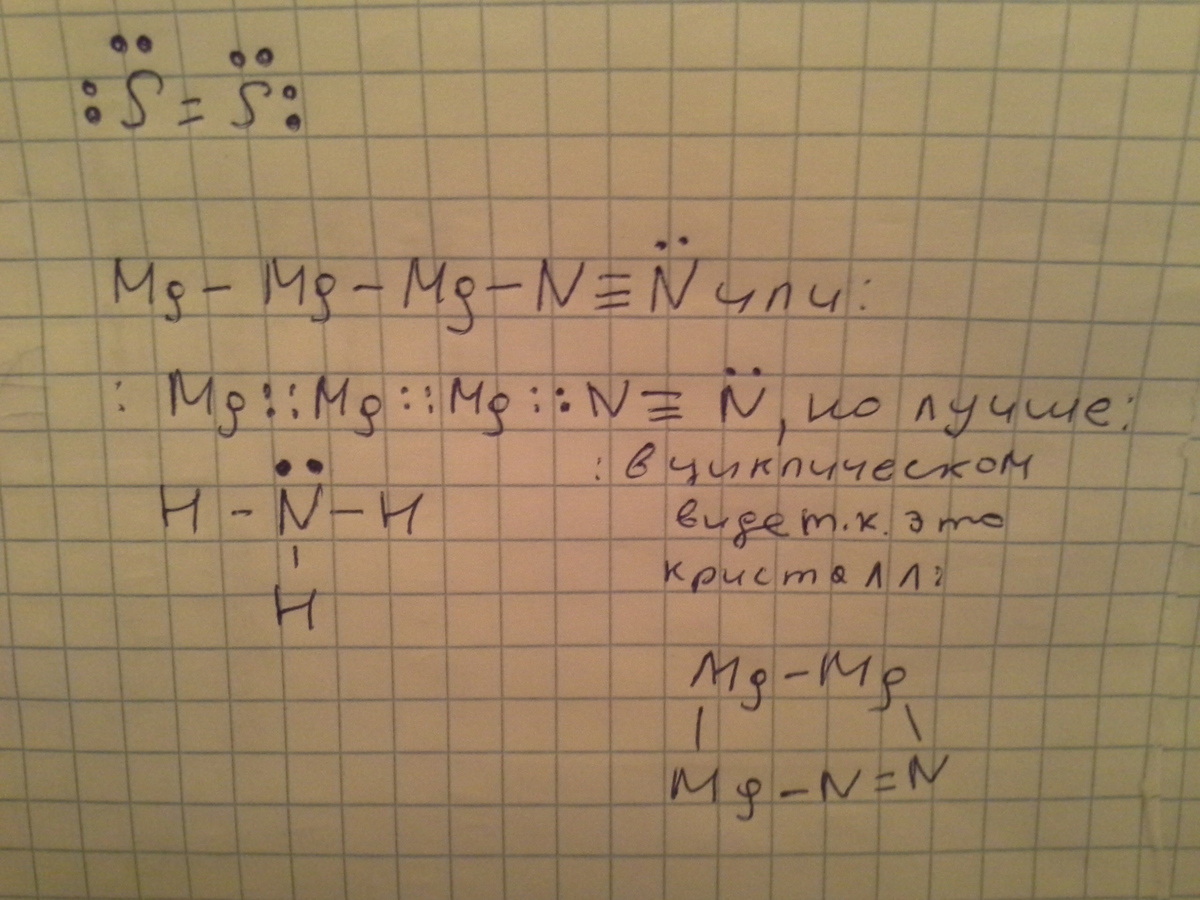 S = S
Mg - Mg - Mg - N ≡ N или:
: Mg :: Mg :: Mg :: N ≡ N, но лучше:
: в циклическом
H - N - H
виде т.к. это
|
кристалл:
H
Mg - Mg
| \
Mg - N = N